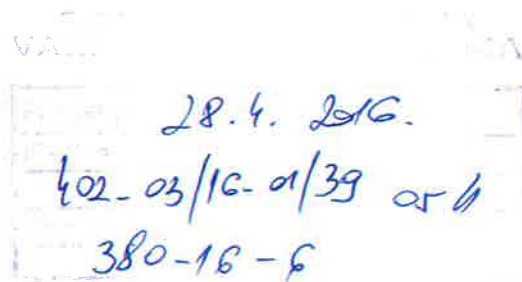 28.4. 2016.
402-03/16-01/39 05 4
380-16-6